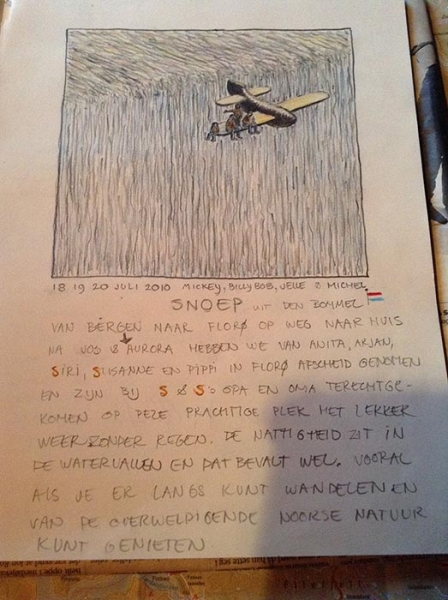 18 19 20 JULI 2010 MICKEY, BILLY BOB, JELLE & MICHEL
SNOEP UIT DEN BOMMEL
VAN BERGEN NAAR FLORØ OP WEG NAAR HUIS
NA VOS & AURORA HEBBEN WE VAN ANITA, ARJAN,
SIRI, SUSANNE EN PIPPI IN FLORØ AFSCHEID GENOMEN
EN ZIJN BIJ S & S's OPA EN OMA TERECHTGE-
KOMEN OP DEZE PRACHTIGE PLEK MET LEKKER
WEER ZONDER REGEN. DE NATTIGHEID ZIT IN
DE WATERVALLEN EN DAT BEVALT WEL. VOORAL
ALS JE ER LANGS KUNT WANDELEN EN
VAN DE OVERWELDIGENDE NOORSE NATUUR
KUNT GENIETEN.